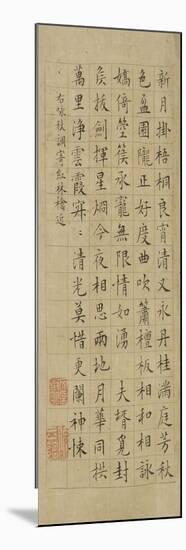 新月掛梧桐良宵清又永丹桂滿庭芳秋
色盈園隴正好度曲吹簫檀板相和相詠
嬌倚箜篌承寵無限情如湧　夫壻覓封
矦拔劍揮星燗今夜相思兩地月華同拱
萬里淨雲霞寐〻清光莫惜更闌神悚
右咏秋調寄